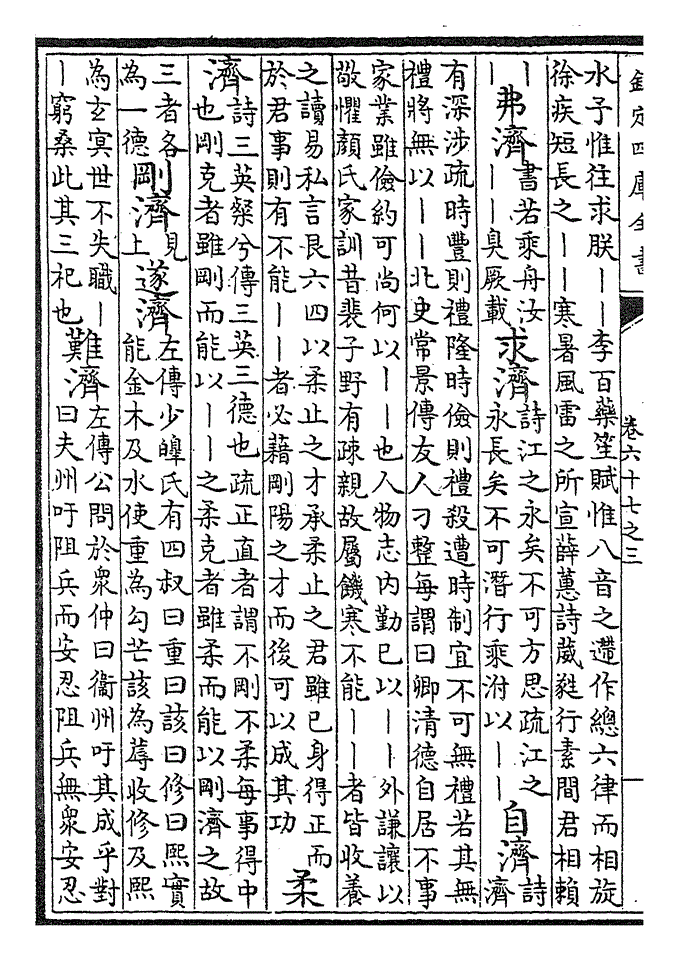 欽定四庫全書
卷六十七之三
一
水子惟往求朕丨丨李百藥笙賦惟八音之遞作總六律而相旋
徐疾短長之丨丨寒暑風雷之所宣薛蕙詩葳蕤行素間君相賴
丨
丨
弗濟
書若乘舟汝
丨丨臭厥載
求濟
詩江之永矣不可方思疏江之
永長矣不可潛行乘泭以丨丨
自濟
詩
濟
有深涉疏時豐則禮隆時儉則禮殺遭時制宜不可無禮若其無
禮將無以丨丨北史常景傳友人刁整每謂曰卿清德自居不事
家業雖儉約可尚何以丨丨也人物志內勤已以丨丨外謙讓以
敬懼顏氏家訓昔裴子野有疎親故屬饑寒不能丨丨者皆收養
之讀易私言艮六四以柔止之才承柔止之君雖已身得正而
於君事則有不能丨丨者必藉剛陽之才而後可以成其功
柔
濟
詩三英粲兮傳三英三德也疏正直者謂不剛不柔每事得中
也剛克者雖剛而能以丨丨之柔克者雖柔而能以剛濟之故
三者各
為一德
剛濟
見
上
遂濟
左傳少皥氏有四叔曰重曰該曰修曰熙實
能金木及水使重為勾芒該為蓐收修及熙
為玄冥世不失職丨
丨窮桑此其三祀也
難濟
左傳公問於衆仲曰衞州吁其成乎對
曰夫州吁阻兵而安忍阻兵無衆安忍